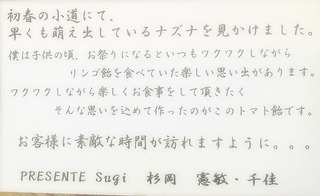 初春の小道にて、
早くも萌え出しているナズナを見かけました。
僕は子供の頃、お祭りになるといつもワクワクしながら
リンゴ飴を食べていた楽しい思い出があります。
ワクワクしながら楽しくお食事をして頂きたく
そんな思いを込めて作ったのがこのトマト飴です。
お客様に素敵な時間が訪れますように。。。
PRESENTE Sugi 杉岡 憲敏・千佳